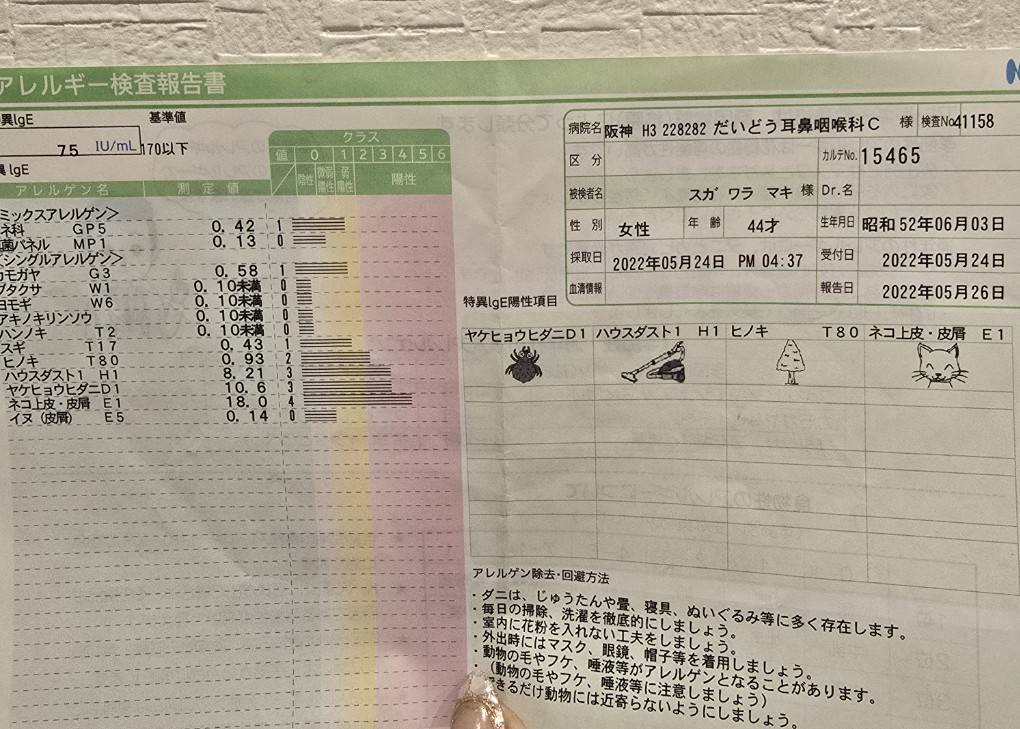 アレルギー検査報告書
異IgE 基準値
75 IU/mL 170以下
異IgE
クラス
値 0 1 2 3 4 5 6
陰性 微弱陽性 弱陽性 陽性
アレルゲン名 測定値
ミックスアレルゲン>
ネ科 GP5 0.42 1
菌パネル MP1 0.13 0
シングルアレルゲン>
カモガヤ G3 0.58 1
ブタクサ W1 0.10未満 0
ヨモギ W6 0.10未満 0
アキノキリンソウ 0.10未満 0
ハンノキ T2 0.10未満 0
スギ T17 0.43 1
ヒノキ T80 0.93 2
ハウスダスト1 H1 8.21 3
ヤケヒョウヒダニD1 10.6 3
ネコ上皮・皮屑 E1 18.0 4
イヌ(皮屑) E5 0.14 0
病院名 阪神 H3 228282 だいどう耳鼻咽喉科C 様 検査No. 41158
区分 カルテNo. 15465
被検者名 スガワラ マキ 様 Dr.名
性別 女性 年齢 44才 生年月日 昭和52年06月03日
採取日 2022年05月24日 PM 04:37 受付日 2022年05月24日
血清情報 報告日 2022年05月26日
特異IgE陽性項目
ヤケヒョウヒダニD1 ハウスダスト1 H1 ヒノキ T80 ネコ上皮・皮屑 E1
アレルゲン除去・回避方法
・ダニは、じゅうたんや畳、寝具、ぬいぐるみ等に多く存在します。
・毎日の掃除、洗濯を徹底的にしましょう。
・室内に花粉を入れない工夫をしましょう。
・外出時にはマスク、眼鏡、帽子等を着用しましょう。
・動物の毛やフケ、唾液等がアレルゲンとなることがあります。
・(動物の毛やフケ、唾液等に注意しましょう)
できるだけ動物には近寄らないようにしましょう。